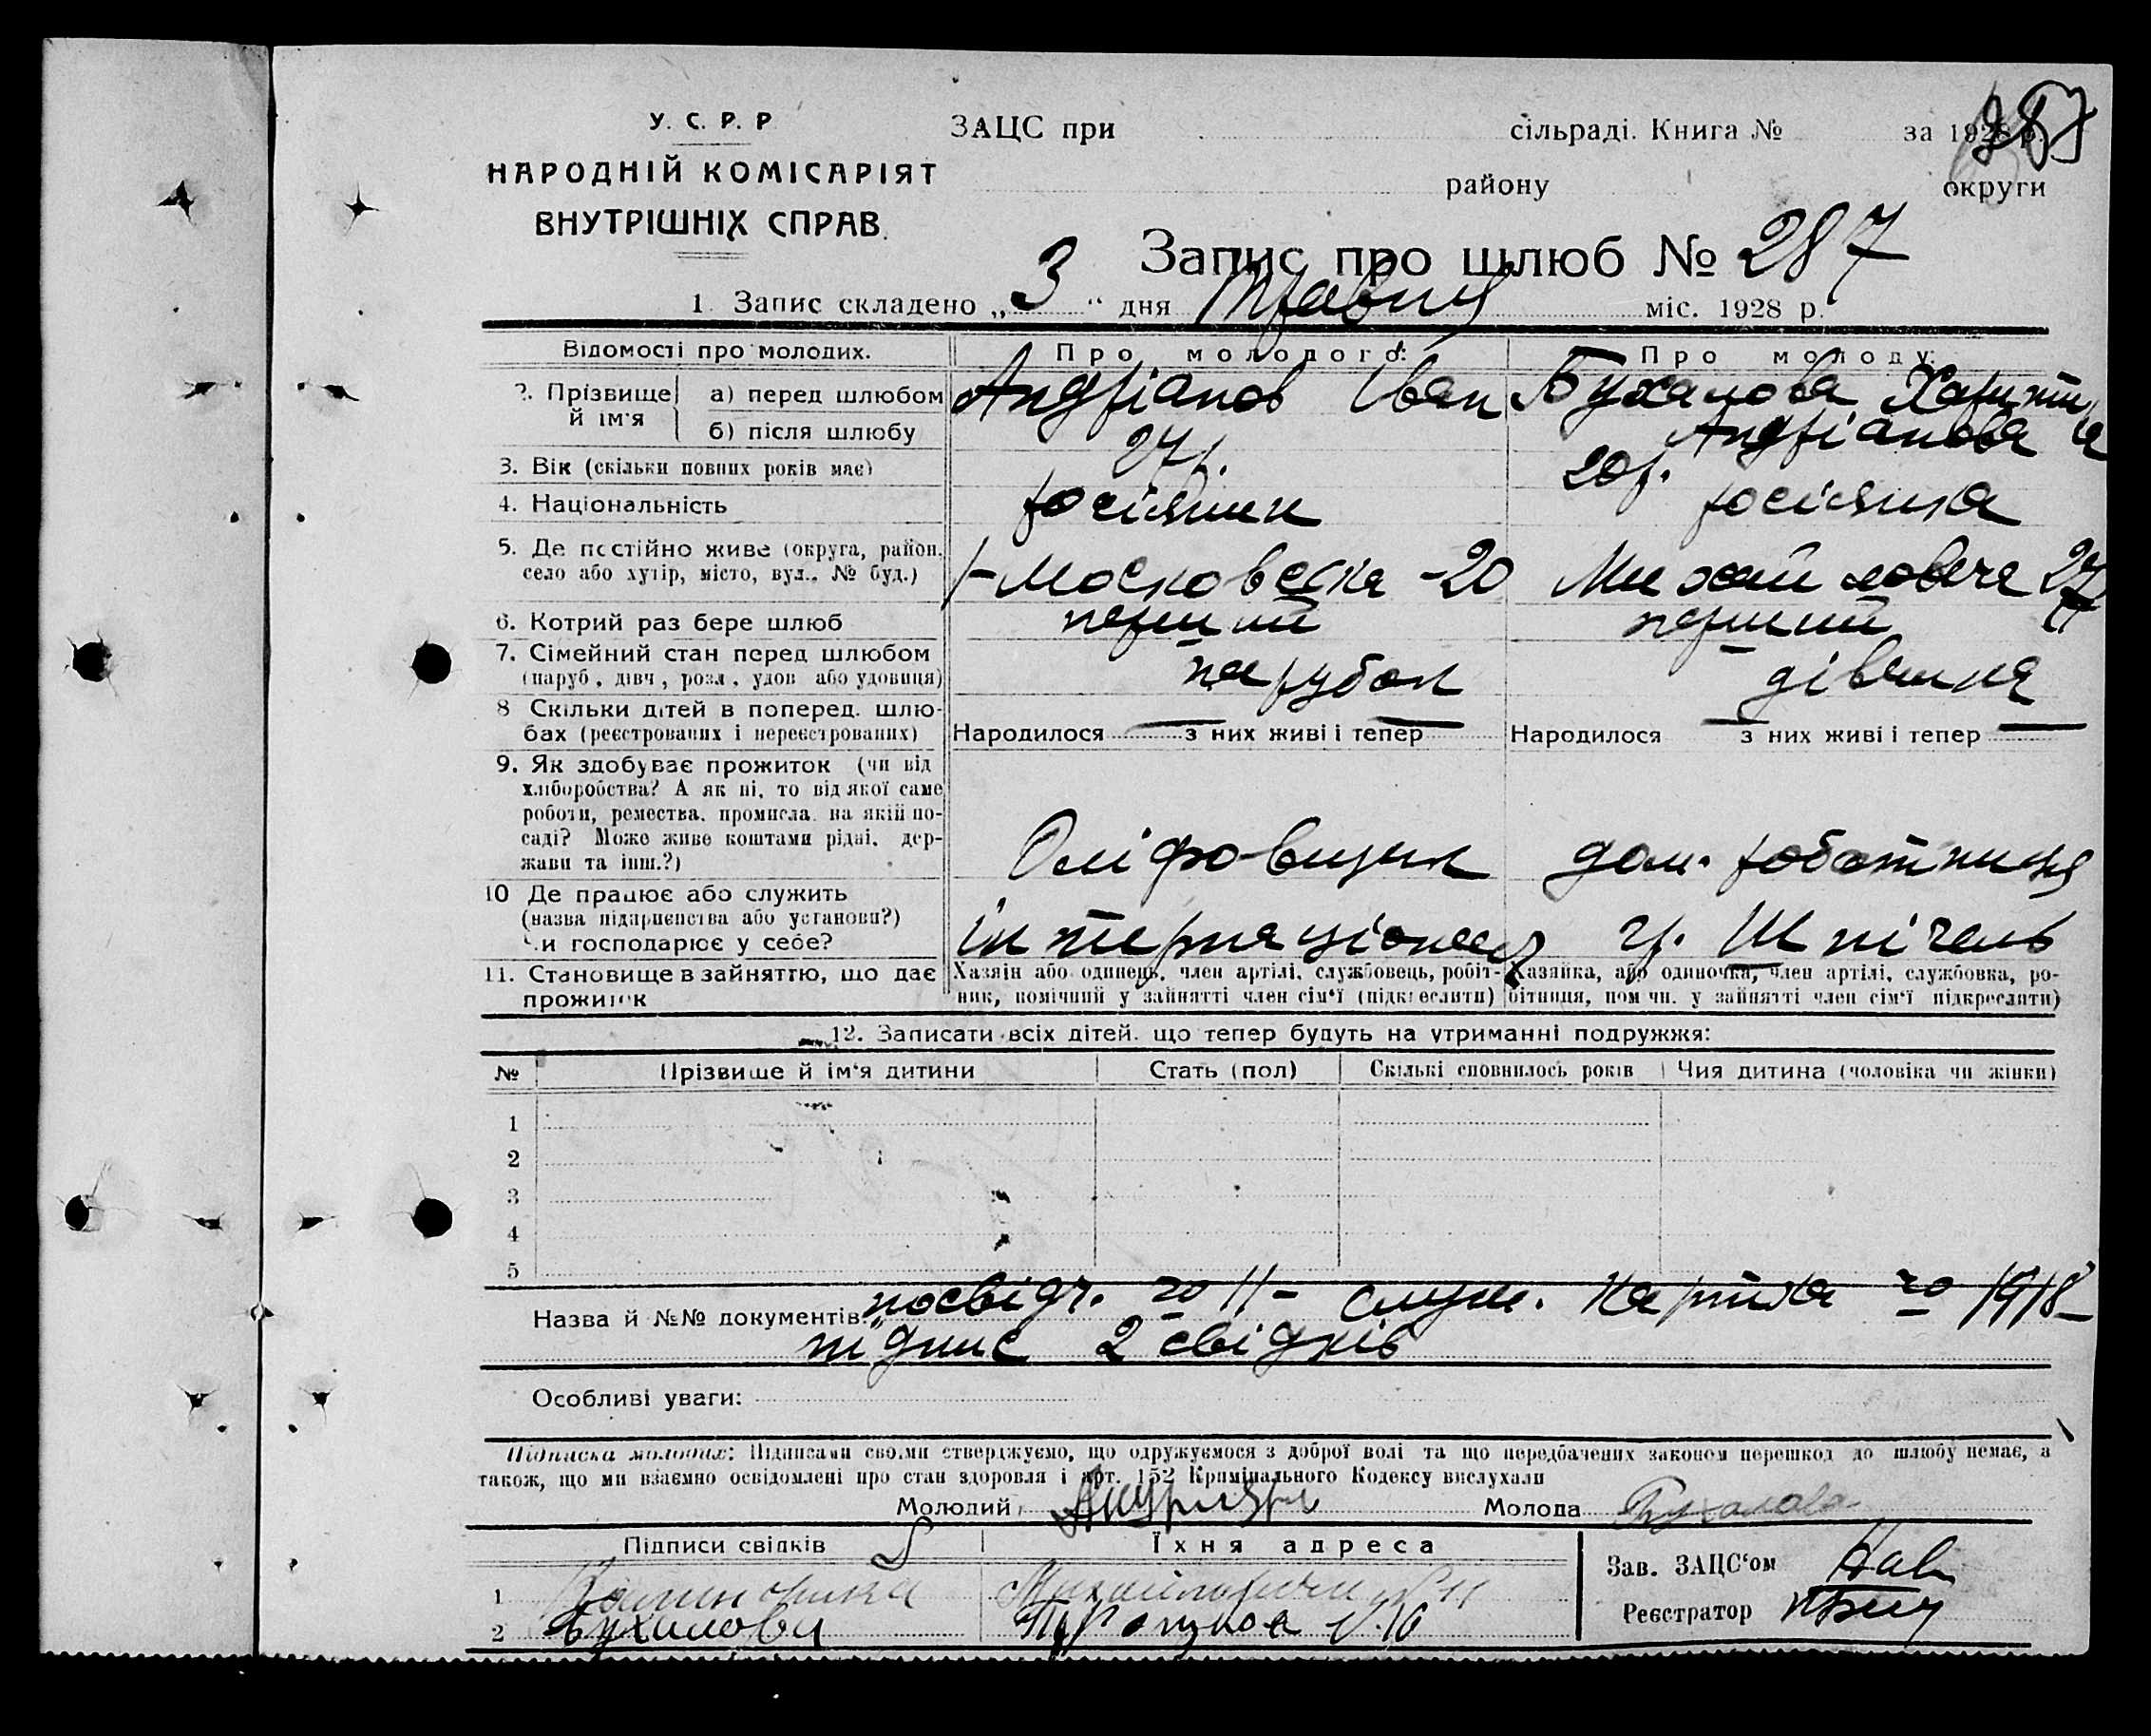 У. С. Р. Р
НАРОДНІЙ КОМІСАРІЯТ
ВНУТРІШНІХ СПРАВ
ЗАЦС при сільраді. Книга № за 1928 р.
району округи
287
Запис про шлюб № 287
1. Запис складено „ 3 “ дня травня міс. 1928 р.
Відомості про молодих. Про молодого: Про молоду:
2. Прізвище й ім'я а) перед шлюбом Андріанов Іван Бухалова Харитина
б) після шлюбу Андріанова
3. Вік (скільки повних років має) 27 р. 20 р.
4. Національність росіянин росіянка
5. Де постійно живе (округа, район, Московська -20
село або хутір, місто, вул., № буд.) 27
6. Котрий раз бере шлюб перший перший
7. Сімейний стан перед шлюбом парубок дівчина
(паруб., дівч., розл., удов. або удовиця)
8 Скільки дітей в поперед. шлю-
бах (реєстрованих і нереєстрованих) Народилося — з них живі і тепер — Народилося — з них живі і тепер —
9. Як здобуває прожиток (чи від
хліборобства? А як ні, то від якої саме
роботи, ремества, промисла, на якій по-
саді? Може живе коштами рідні, дер-
жави та інш.?) дом. робітниця
10 Де працює або служить
(назва підприємства або установи?) Інтернаціонал гр. Шпігель
Чи господарює у себе?
11. Становище в зайняттю, що дає прожиток
Хазяїн або одинець, член артілі, службовець, робіт-
ник, помічний у зайнятті член сім'ї (підкреслити)
Хазяйка, або одиночка, член артілі, службовка, ро-
бітниця, пом чн. у зайнятті член сім'ї підкреслити)
12. Записати всіх дітей, що тепер будуть на утриманні подружжя:
№ Прізвище й ім'я дитини Стать (пол) Скількі сповнилось років Чия дитина (чоловіка чи жінки)
1
2
3
4
5
Назва й №№ документів: посвідч. за 11- служ. картка за 1918-
підпис 2 свідків
Особливі уваги:
Підписка молодих: Підписами своїми стверджуємо, що одружуємося з доброї волі та що передбачених законом перешкод до шлюбу немає, а
також, що ми взаємно освідомлені про стан здоровля і арт. 152 Кримінального Кодексу вислухали
Молодий Молода Бухалова
Підписи свідків Їхня адреса
Зав. ЗАЦС'ом
1
Реєстратор
2 Бухалова